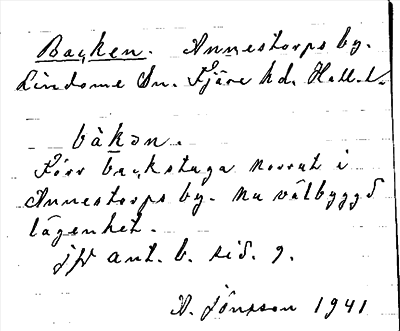 Backen. Annestorps by.
Lindome Sn. Fjäre hd. Hall. l.
bàkən.
Förr backstuga norrut i
Annestorps by. Nu välbyggd
lägenhet.
jfr ant. b. sid. 9.
A. Jönsson 1941